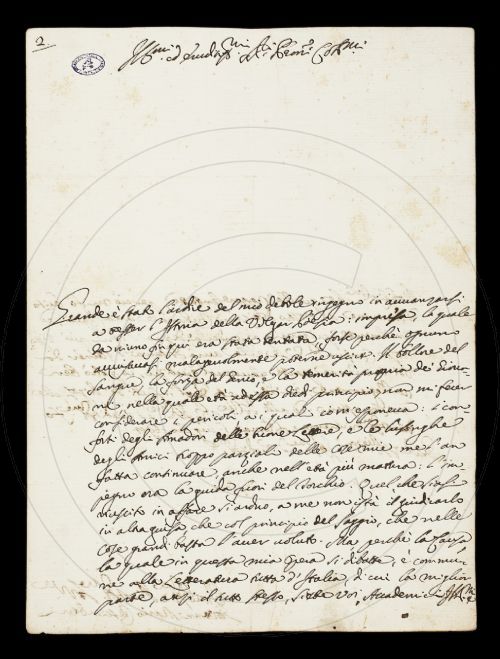 2
Ill.mi ed Eruditiss.mi Sig.ri Pron.i Col.mi
Grande è stato l'ardire del mio debole ingegno in avvanzarsi
a tesser l'Istoria della Volgar Poesia: impresa, la quale
da niuno fin qui era stata tentata, forse perchè ognuno
malagevolmente poterne uscir. Il bollore del
sangue, la forza del Genio, e la temerità propria dei Giova-
ni, nella quale età adessa diedi principio non mi fecer
considerare i pericoli a i quali io mi esponeva: i con-
forti degli Amadori delle buone Lettere, e le lusinghe
degli Amici troppo parziali delle cose mie me l'an
fatta continuare, anche nell'età più matura: l'im-
pegno ora la guida fuori del Torchio. Quel che siasi
riuscito in affare sì arduo, a me non istà il giudicarlo
in altra guisa che col principio del Saggio, che nelle
cose grandi basta l'aver voluto. Ma perchè la Causa
la quale in questa mia Opera si dibatte, è commu-
ne alla Letteratura tutta d'Italia, di cui la miglior
parte, anzi il tutto stesso, siete voi, Accademici Ill.mi